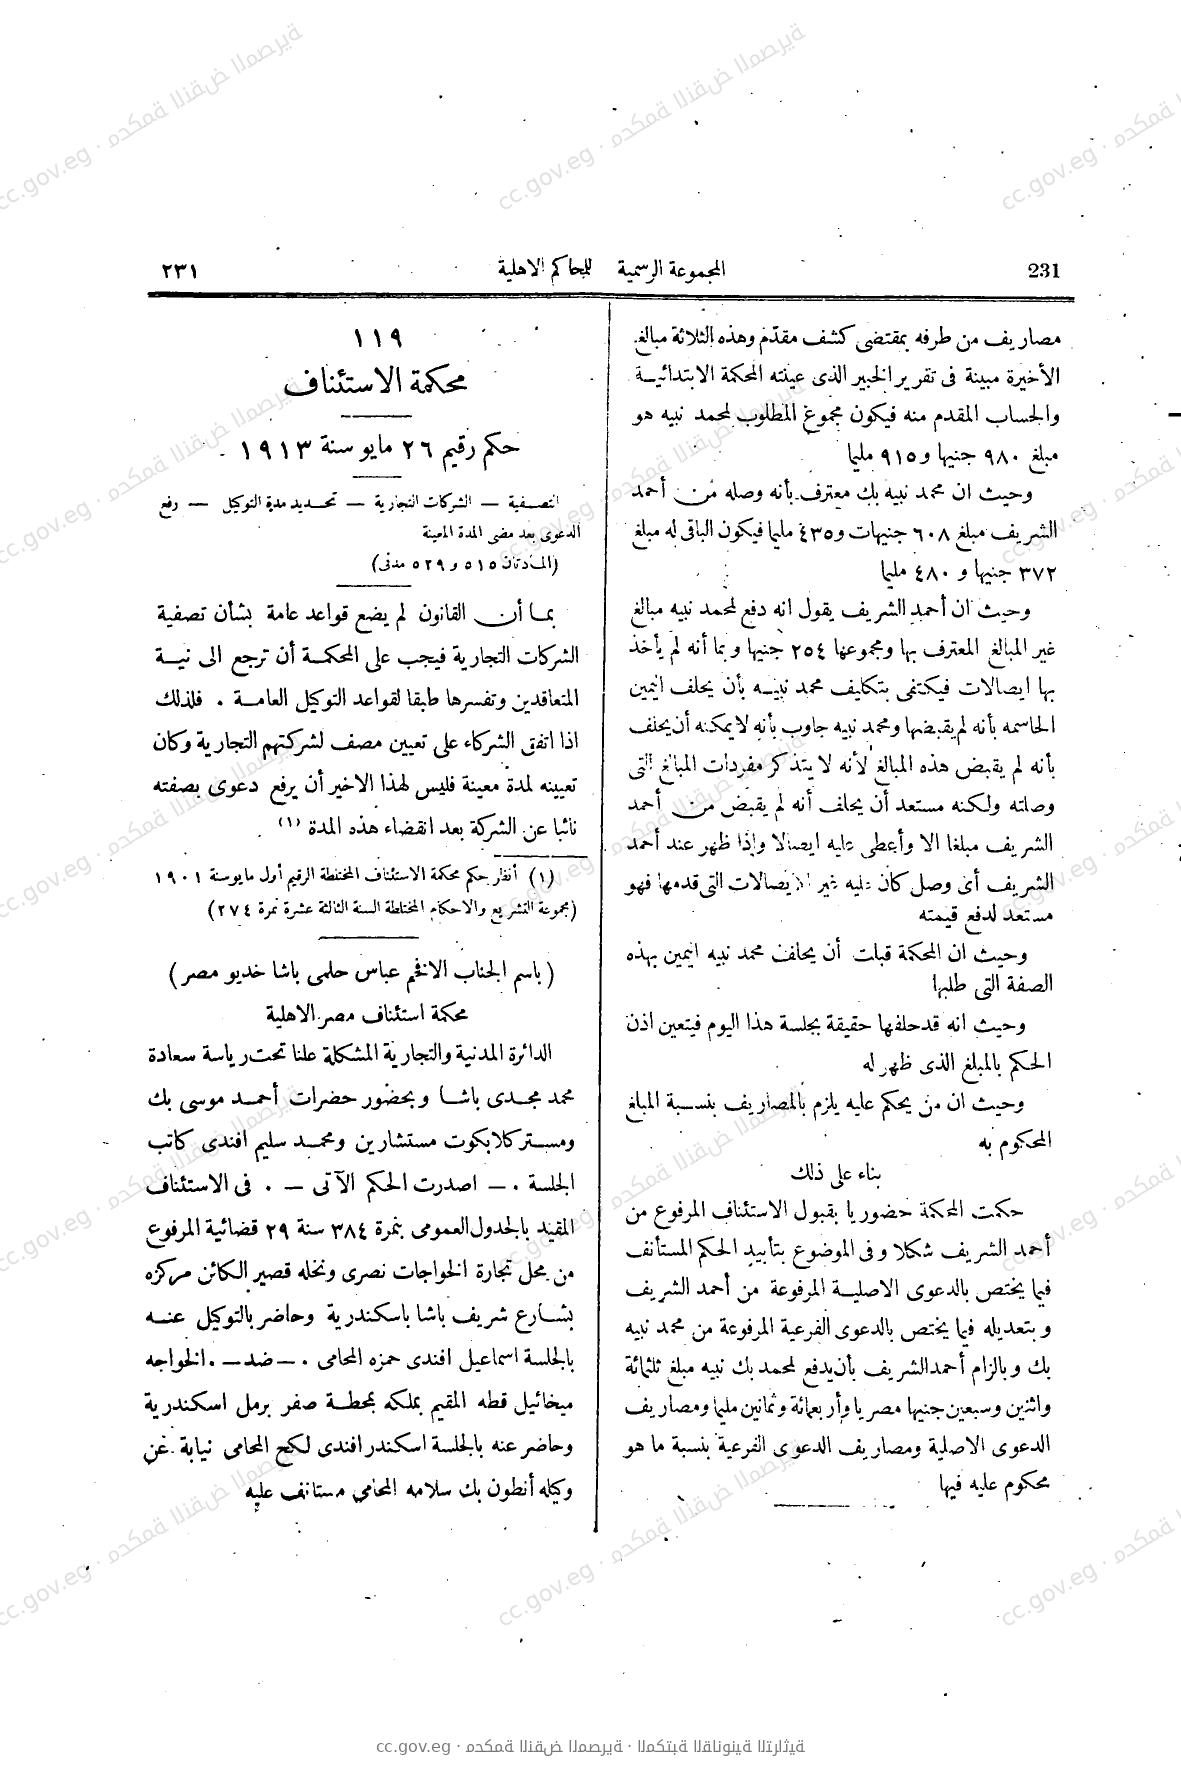 231 المجموعة الرسمية للمحاكم الاهلية ٢٣١
مصاريف من طرفه بمقتضى كشف مقدّم وهذه الثلاثة مبالغ
الأخيرة مبينة فى تقرير الخبير الذى عينته المحكمة الابتدائية
والحساب المقدم منه فيكون مجموع المطلوب لمحمد نبيه هو
مبلغ ٩٨٠ جنيها و٩١٥ مليما
وحيث ان محمد نبيه بك معترف بأنه وصله من أحمد
الشريف مبلغ ٦٠٨ جنيهات و٤٣٥ مليما فيكون الباقى له مبلغ
٣٧٢ جنيها و ٤٨٠ مليما
وحيث ان أحمد الشريف يقول انه دفع لمحمد نبيه مبالغ
غير المبالغ المعترف بها ومجموعها ٢٥٤ جنيها وبما أنه لم يأخذ
بها ايصالات فيكتفى بتكليف محمد نبيه بأن يحلف اليمين
الحاسمه بأنه لم يقبضها ومحمد نبيه جاوب بأنه لا يمكنه أن يحلف
بأنه لم يقبض هذه المبالغ لأنه لا يتذكر مفردات المبالغ التى
وصلته ولكنه مستعد أن يحلف أنه لم يقبض من أحمد
الشريف مبلغا الا وأعطى عليه ايصالا وإذا ظهر عند أحمد
الشريف أى وصل كان عليه غير الايصالات التى قدمها فهو
مستعد لدفع قيمته
وحيث ان المحكمة قبلت أن يحلف محمد نبيه اليمين بهذه
الصفة التى طلبها
وحيث انه قد حلفها حقيقة بجلسة هذا اليوم فيتعين اذن
الحكم بالمبلغ الذى ظهر له
وحيث ان من يحكم عليه يلزم بالمصاريف بنسبة المبلغ
المحكوم به
بناء على ذلك
حكمت المحكمة حضوريا بقبول الاستئناف المرفوع من
أحمد الشريف شكلا وفى الموضوع بتأييد الحكم المستأنف
فيما يختص بالدعوى الاصلية المرفوعة من أحمد الشريف
وبتعديله فيما يختص بالدعوى الفرعية المرفوعة من محمد نبيه
بك وبالزام أحمد الشريف بأن يدفع لمحمد بك نبيه مبلغ ثلثمائة
واثنين وسبعين جنيها مصريا وأربعمائة وثمانين مليما ومصاريف
الدعوى الاصلية ومصاريف الدعوى الفرعية بنسبة ما هو
محكوم عليه فيها
١١٩
محكمة الاستئناف
حكم رقيم ٢٦ مايو سنة ١٩١٣
التصفية — الشركات التجارية — تحديد مدة التوكيل — رفع
الدعوى بعد مضى المدة المعينة
(المادتان ٥١٥ و ٥٢٩ مدنى)
بما أن القانون لم يضع قواعد عامة بشأن تصفية
الشركات التجارية فيجب على المحكمة أن ترجع الى نية
المتعاقدين وتفسرها طبقا لقواعد التوكيل العامة . فلذلك
اذا اتفق الشركاء على تعيين مصف لشركتهم التجارية وكان
تعيينه لمدة معينة فليس لهذا الاخير أن يرفع دعوى بصفته
نائبا عن الشركة بعد انقضاء هذه المدة (١) .
(١) أنظر حكم محكمة الاستئناف المختلطة الرقيم أول مايو سنة ١٩٠١
(مجموعة التشريع والاحكام المختلطة السنة الثالثة عشرة نمرة ٢٧٤)
(باسم الجناب الافخم عباس حلمى باشا خديو مصر)
محكمة استئناف مصر الاهلية
الدائرة المدنية والتجارية المشكلة علنا تحت رياسة سعادة
محمد مجدى باشا وبحضور حضرات أحمد موسى بك
ومستر كلابكوت مستشارين ومحمد سليم افندى كاتب
الجلسة . — اصدرت الحكم الآتى — . فى الاستئناف
المقيد بالجدول العمومى بنمرة ٣٨٤ سنة ٢٩ قضائية المرفوع
من محل تجارة الخواجات نصرى ونخله قصير الكائن مركزه
بشارع شريف باشا باسكندرية وحاضر بالتوكيل عنه
بالجلسة اسماعيل افندى حمزه المحامى . — ضد — . الخواجه
ميخائيل قطه المقيم بملكه بمحطة صفر برمل اسكندرية
وحاضر عنه بالجلسة اسكندر افندى لكح المحامى نيابة عن
وكيله أنطون بك سلامه المحامى مستانف عليه
cc.gov.eg · محكمة النقض المصرية · المكتبة القانونية التراثية